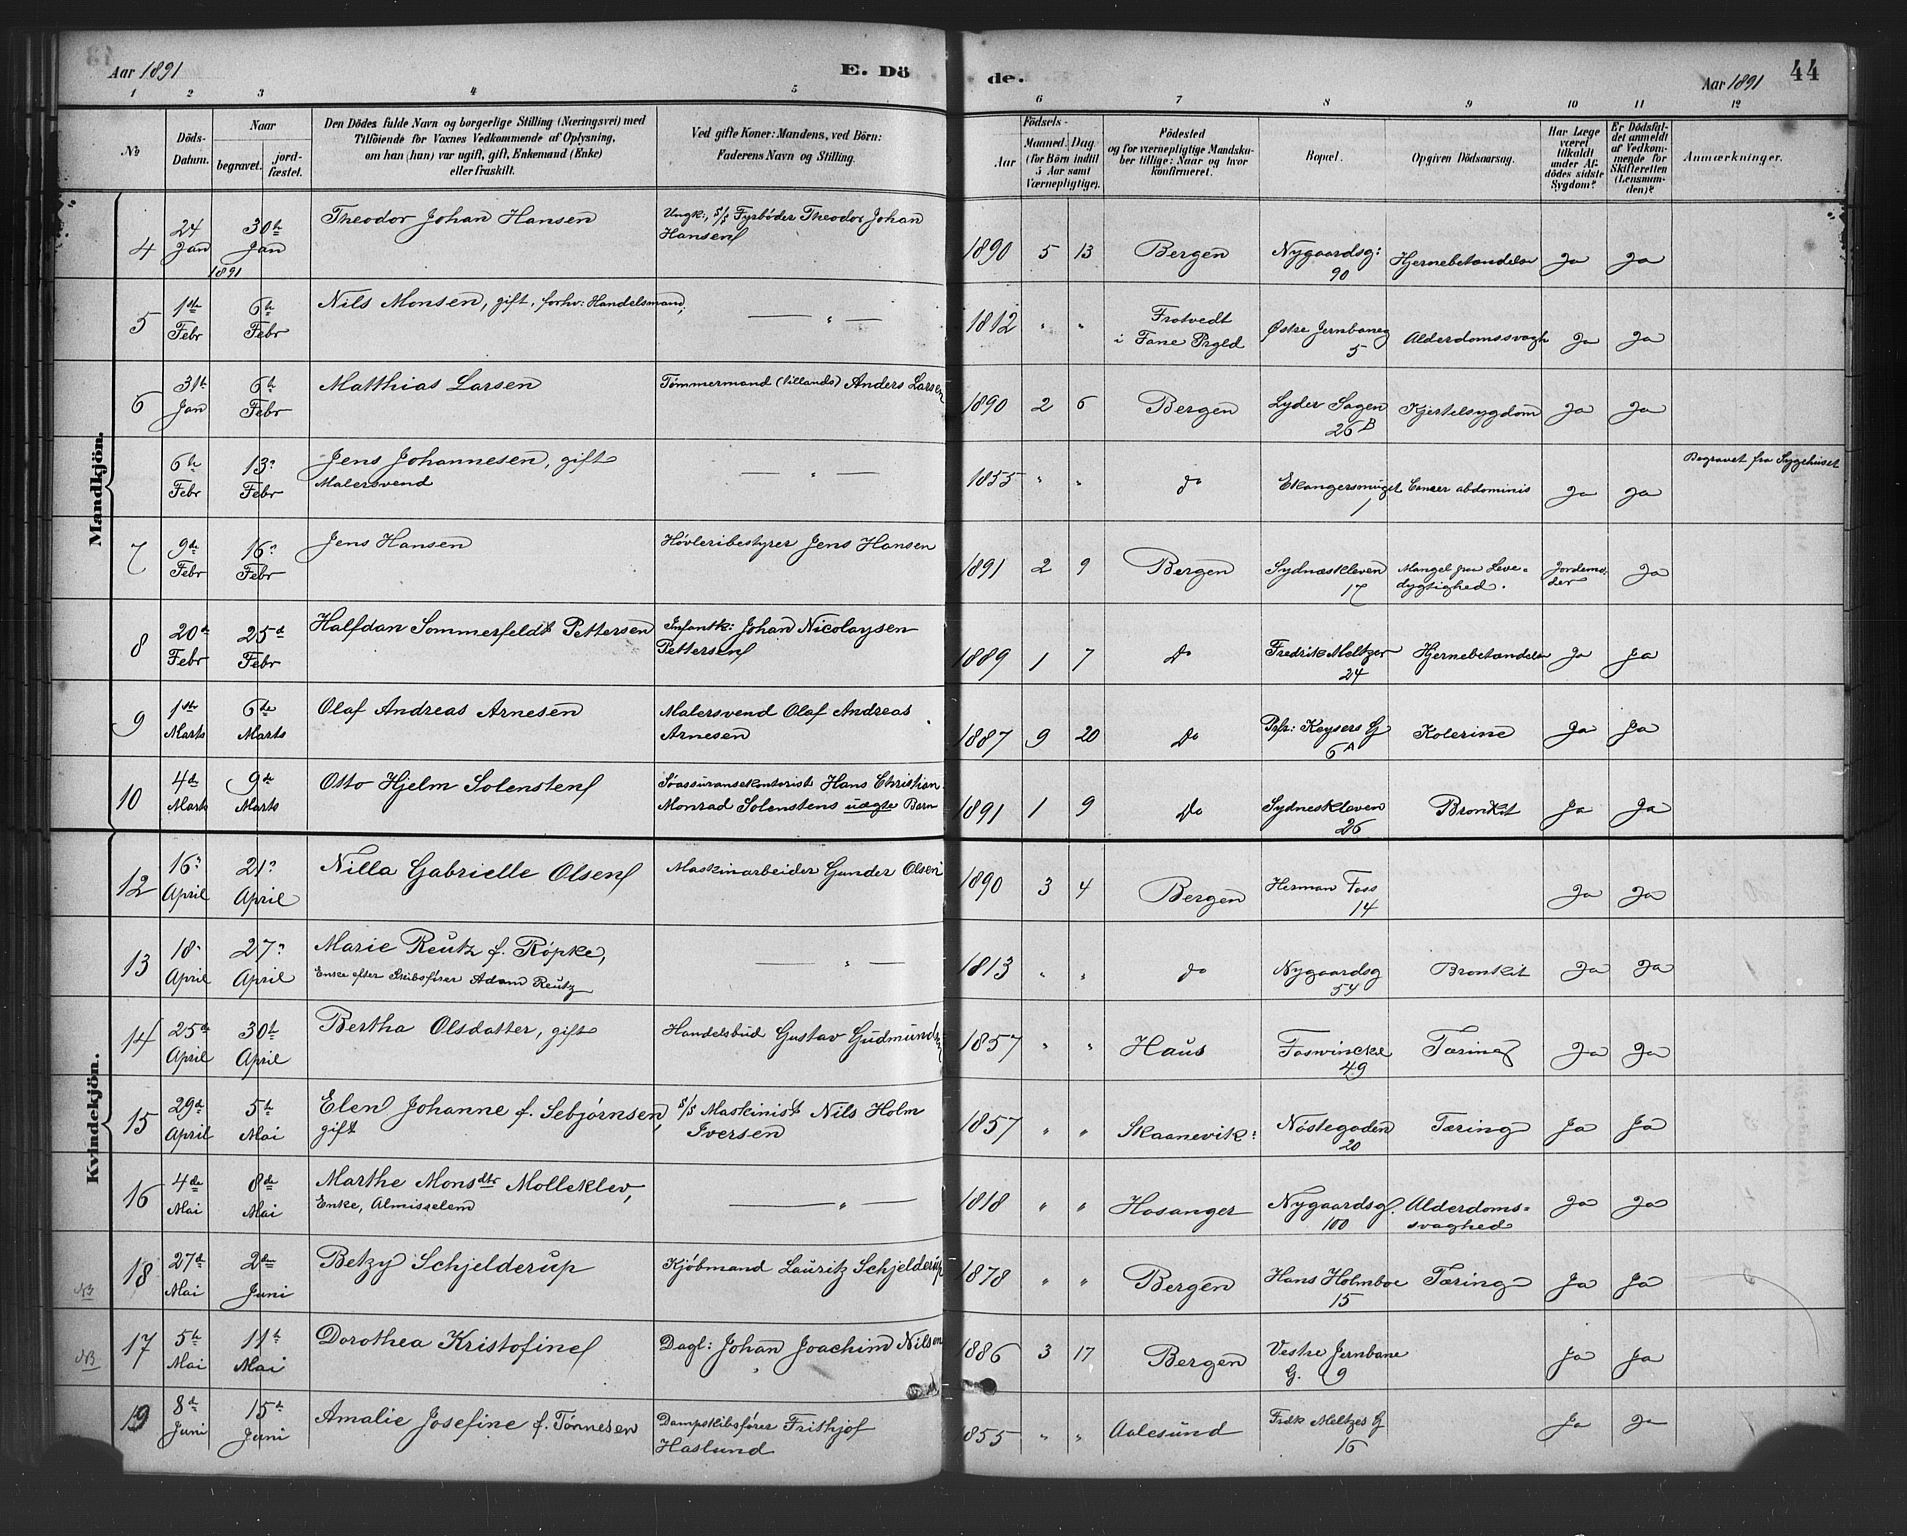 Aar 1891 E. Dö de. Aar 1891 44
1 2 3 4 5 6 7 8 9 10 11 12
No Döds-Datum. Naar begravet. jordfæstet. Den Dödes fulde Navn og borgerlige Stilling (Næringsvei) med Tilföiende for Voxnes Vedkommende af Oplysning, om han (hun) var ugift, gift, Enkemand (Enke) eller fraskilt. Ved gifte Koner: Mandens, ved Börn: Faderens Navn og Stilling. Födsels- Aar Maaned. Dag (for Börn indtil 5 Aar samt Værnepligtige). Födested og for værnepligtige Mandskaber tillige: Naar og hvor konfirmeret. Bopæl. Opgiven Dödsaarsag. Har Læge været tilkaldt under Afdödes sidste Sygdom? Er Dödsfaldet anmeldt af Vedkommende for Skifteretten (Lensmanden)? Anmærkninger.
Mandkjön.
4 24 Jan 30te Jan 1891 Theodor Johan Hansen Ungk:, s/s Fyrbøder Theodor Johan Hansen 1890 5 13 Bergen Nygaardsg: 90 Hjernebetændelse Ja Ja
5 1ste Febr 6te Febr Nils Monsen, gift, forhv: Handelsmand, — " — 1812 " " Frotvedt i Fane Prgld Østre Jernbaneg 5 Alderdomssvagh Ja Ja
6 31te Jan 6te Febr Matthias Larsen Tømmermand (tillands) Anders Larsen 1890 2 6 Bergen Lyder Sagen 26 B Kjertelsygdom Ja Ja
6te Febr 13de Febr Jens Johannesen, gift Malersvend — " — 1855 " " do Ekangersmuget 1 Cancer abdominis Ja Ja Begravet fra Sygehuset
7 9de Febr 16de Febr Jens Hansen Høvleribestyrer Jens Hansen 1891 2 9 Bergen Sydnæskleven 17 Mangel paa Levedygtighed. Jordemoder Ja
8 20de Febr 25de Febr Halfdan Sommerfeldt Pettersen Infantk: Johan Nicolaysen Pettersen 1889 1 7 Do Fredrik Meltzer 24 Hjernebetændelse Ja Ja
9 1ste Marts 6te Marts Olaf Andreas Arnesen Malersvend Olaf Andreas Arnesen 1887 9 20 Do Prfs: Keysers G 6A Kolerine Ja Ja
10 4de Marts 9de Marts Otto Hjelm Solensten Søassuransekontorist Hans Christian Monrad Solenstens uægte Barn 1891 1 9 Do Sydneskleven 26 Bronkit Ja Ja
Kvindekjön.
12 16de April 21de April Nilla Gabrielle Olsen Maskinarbeider Gunder Olsen 1890 3 4 Bergen Herman Foss 14 Ja Ja
13 18de April 27de April Marie Reutz f. Röpke, Enke efter Skibsfører Adam Reutz — " — 1813 " " do Nygaardsg 54 Bronkit Ja Ja
14 25de April 30te April Bertha Olsdatter, gift Handelsbud Gustav Gudmundsen 1857 " " Haus Foswinckel 49 Tæring Ja Ja
15 29de April 5te Mai Elen Johanne f. Sebjørnsen, gift s/s Maskinist Nils Holm Iversen 1857 " " Skaanevik: Nöstegaden 20 Tæring Ja Ja
16 4de Mai 8de Mai Marthe Monsdtr Molleklev, Enke, Almisselem — " — 1818 " " Hosanger Nygaardsg. 100 Alderdomssvaghed Ja Ja
NB 18 27de Mai 2den Juni Betzy Schjelderup Kjøbmand Lauritz Schjelderup 1878 " " Bergen Hans Holmboe 15 Tæring Ja Ja
NB 17 5te Mai 11te Mai Dorothea Kristofine Dagl: Johan Joachim Nilsen 1886 3 17 Bergen Vestre Jernbane G. 9 Ja Ja
19 8de Juni 15de Juni Amalie Josefine f. Tönnesen Dampskibsfører Frithjof Haslund 1855 " " Aalesund Fredk Meltzes G 16 Ja Ja